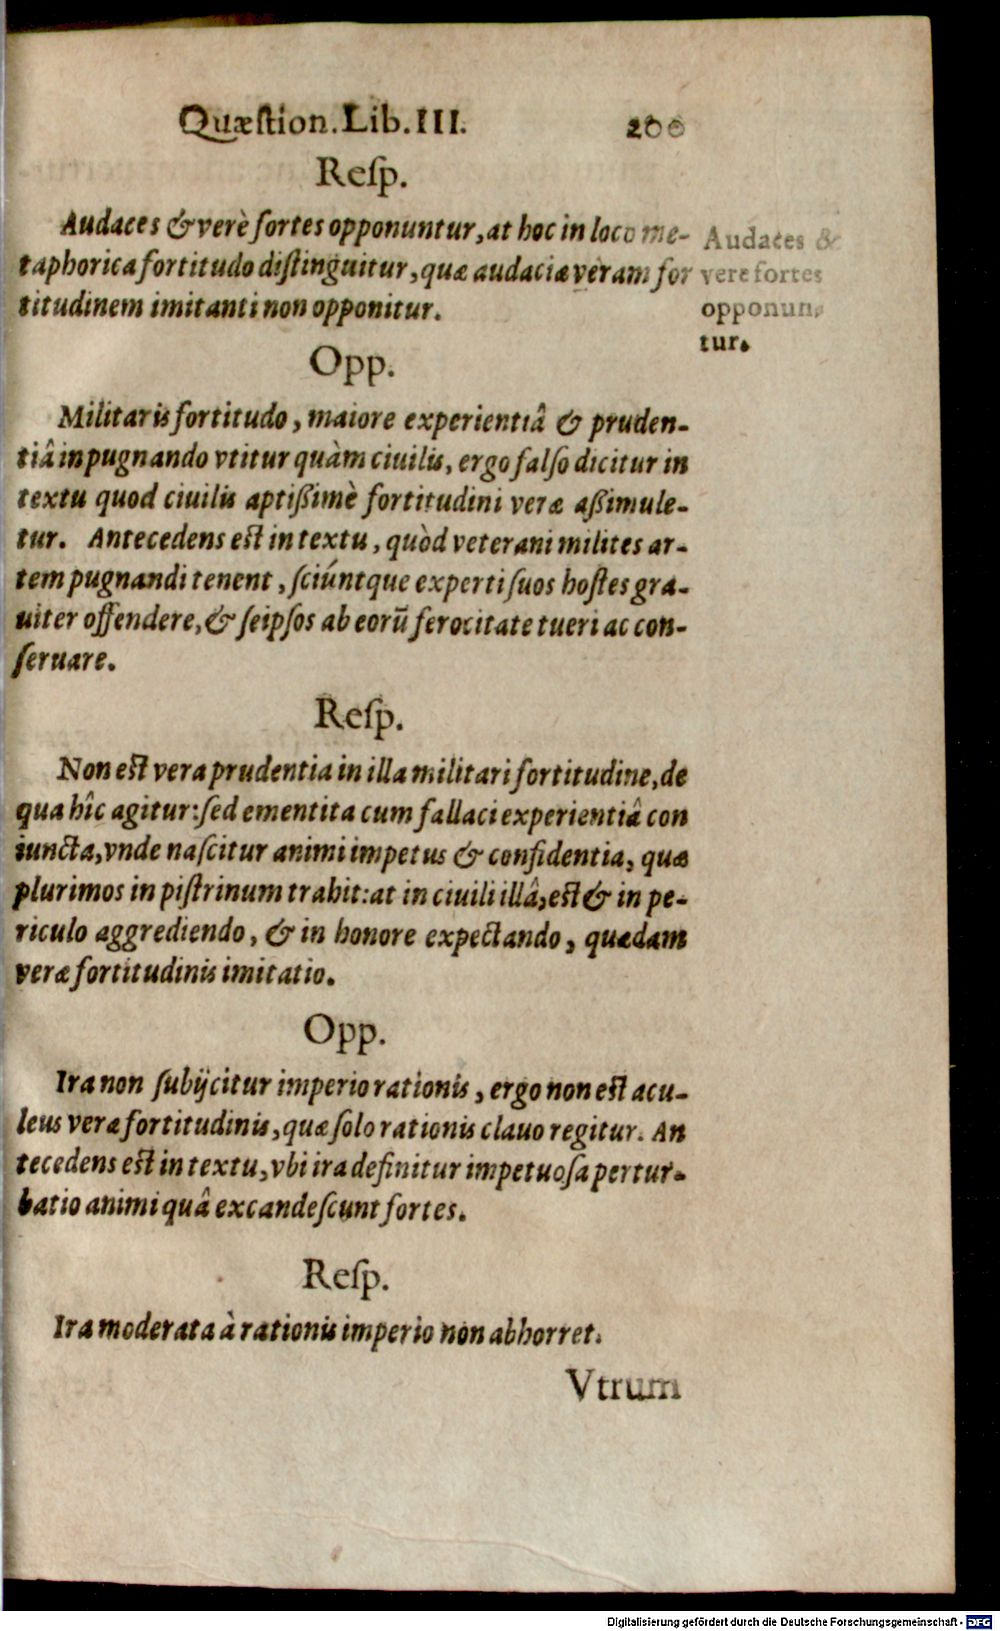 Quæſtion. Lib. III. 200
Reſp.
Audaces & verè fortes opponuntur, at hoc in loco me-
taphorica fortitudo diſtinguitur, quæ audaciæ veram for
titudinem imitanti non opponitur.
Audaces &
vere fortes
opponun-
tur.
Opp.
Militaris fortitudo, maiore experientiâ & pruden-
tiâ in pugnando vtitur quàm ciuilis, ergo falſo dicitur in
textu quod ciuilis aptißimè fortitudini veræ aßimule-
tur. Antecedens eſt in textu, quòd veterani milites ar-
tem pugnandi tenent, ſciúntque experti ſuos hoſtes gra-
uiter offendere, & ſeipſos ab eorũ ferocitate tueri ac con-
ſeruare.
Reſp.
Non eſt vera prudentia in illa militari fortitudine, de
qua hîc agitur: ſed ementita cum fallaci experientiâ con
iuncta, vnde naſcitur animi impetus & confidentia, quæ
plurimos in piſtrinum trahit: at in ciuili illâ, eſt & in pe-
riculo aggrediendo, & in honore expectando, quædam
veræ fortitudinis imitatio.
Opp.
Ira non ſubijcitur imperio rationis, ergo non eſt acu-
leus veræ fortitudinis, quæ ſolo rationis clauo regitur. An
tecedens eſt in textu, vbi ira definitur impetuoſa pertur-
batio animi quâ excandeſcunt fortes.
Reſp.
Ira moderata à rationis imperio non abhorret.
Vtrum
Digitalisierung gefördert durch die Deutsche Forschungsgemeinschaft - DFG